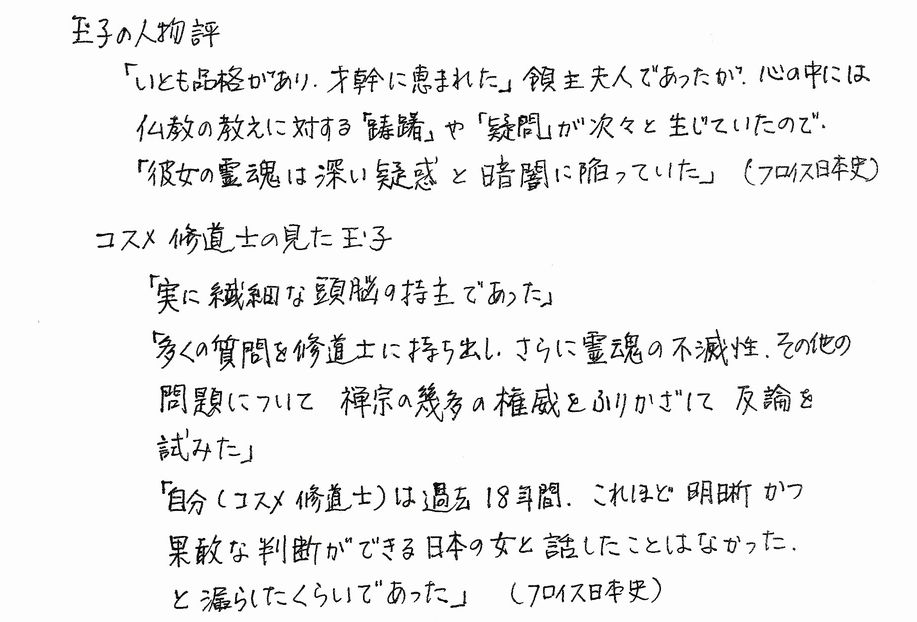 玉子の人物評
「いとも品格があり、才幹に恵まれた」領主夫人であったが、心の中には
仏教の教えに対する「躊躇」や「疑問」が次々と生じていたので、
「彼女の霊魂は深い疑惑と暗闇に陥っていた」（フロイス日本史）
コスメ修道士の見た玉子
「実に繊細な頭脳の持主であった」
「多くの質問を修道士に持ち出し、さらに霊魂の不滅性、その他の
問題について 禅宗の幾多の権威をふりかざして 反論を
試みた」
「自分（コスメ修道士）は過去18年間、これほど明晰かつ
果敢な判断ができる日本の女と話したことはなかった、
と漏らしたくらいであった」（フロイス日本史）